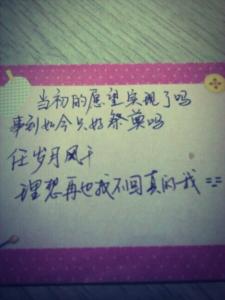 当初的愿望实现了吗
事到如今只好祭奠吗
任岁月风干
理想再也找不回真的我